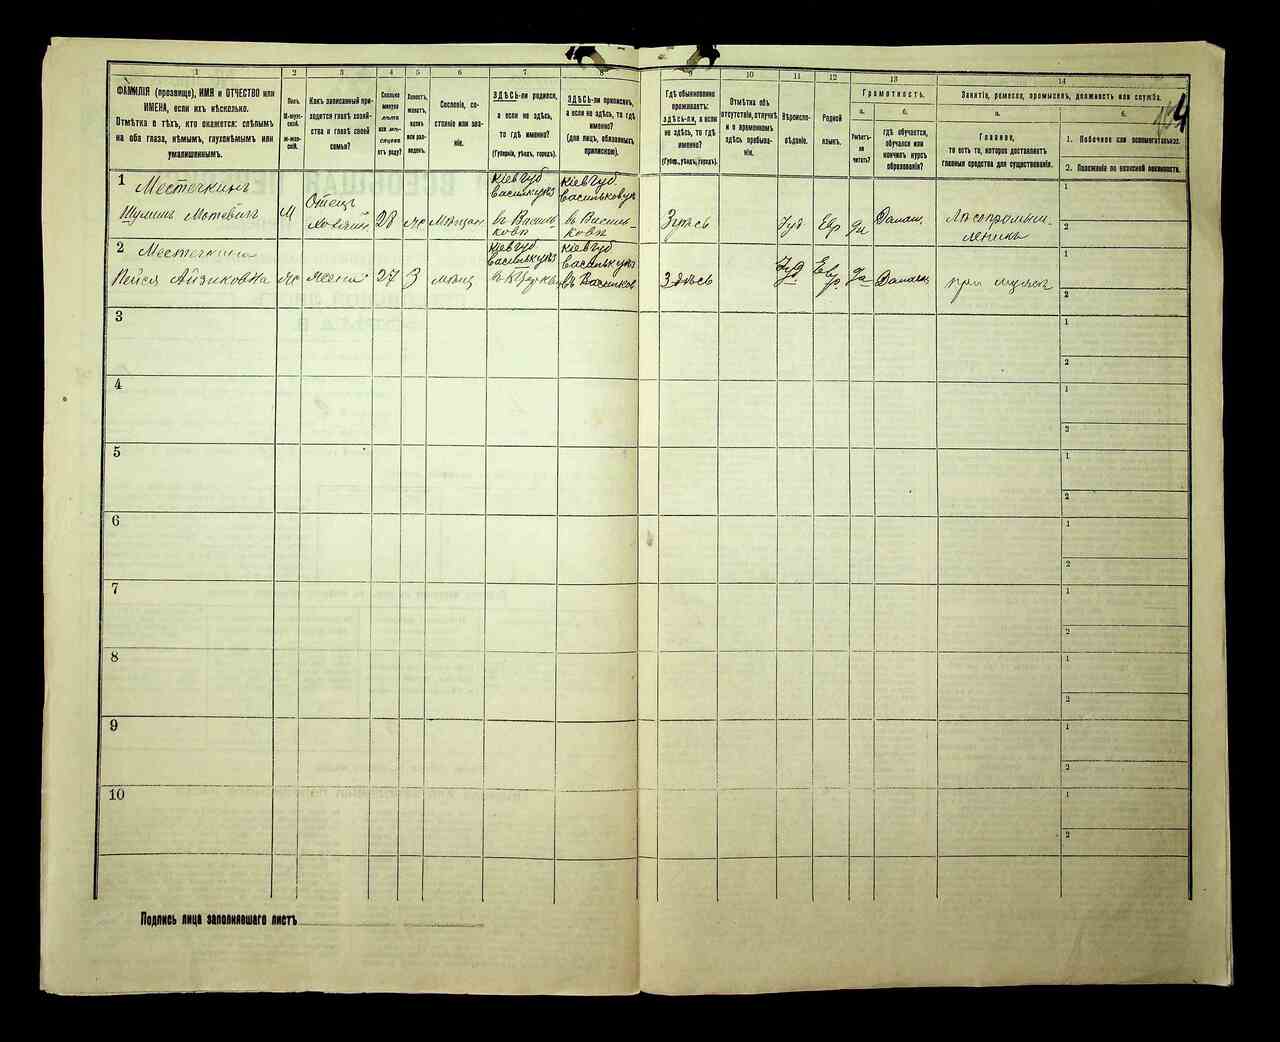 1 2 3 4 5 6 7 8 9 10 11 12 13 14
ФАМИЛІЯ (прозвище), ИМЯ и ОТЧЕСТВО или
ИМЕНА, если ихъ нѣсколько.
Отмѣтка о тѣхъ, кто окажется: слѣпымъ
на оба глаза, нѣмымъ, глухонѣмымъ или
умалишеннымъ.
Полъ.
М-муж-
ской.
Ж-жен-
скій.
Какъ записанный при-
ходится главѣ хозяй-
ства и главѣ своей
семьи?
Сколько
минуло
лѣтъ
или мѣс-
яцевъ
отъ роду?
Холостъ,
женатъ,
вдовъ
или раз-
веденъ.
Сословіе, со-
стояніе или зва-
ніе.
ЗДѢСЬ-ли родился,
а если не здѣсь,
то гдѣ именно?
(Губернія, уѣздъ, городъ).
ЗДѢСЬ-ли приписанъ,
а если не здѣсь, то гдѣ
именно?
(для лицъ, обязанныхъ
припискою).
Гдѣ обыкновенно
проживаетъ:
здѣсь-ли, а если
не здѣсь, то гдѣ
именно?
(Губер., уѣздъ, городъ).
Отмѣтка объ
отсутствіи, отлучкѣ
и о временномъ
здѣсь пребыва-
ніи.
Вѣроиспо-
вѣданіе.
Родной
языкъ.
Грамотность.
а. б.
Умѣетъ-
ли
читать?
гдѣ обучается,
обучался или
кончилъ курсъ
образованія?
Занятіе, ремесло, промыселъ, должность или служба.
а. б.
Главное,
то есть то, которое доставляетъ
главныя средства для существованія.
1. Побочное или вспомогательное.
2. Положеніе по воинской повинности.
4
1 Местечкинъ
Шулимъ Мотевичъ М Отецъ Хозяинъ 28 Ж Мѣщан. Кіев Губ Васильк уѣз въ Василь-ковѣ Кіев Губ. Васильков у въ Василь-ковѣ Здѣсь Іуд Евр Да Домаш. Лѣсопромыш-ленникъ
1
2
2 Местечкина
Пейся Айзиковна Ж Жена 27 З мѣщ Кіев Губ Васильк уѣз Кіев Губ. Васильк уѣз въ Васильков Здѣсь Іуд Евр. Да Домаш при мужѣ
1
2
3
1
2
4
1
2
5
1
2
6
1
2
7
1
2
8
1
2
9
1
2
10
1
2
Подпись лица заполнявшаго листъ